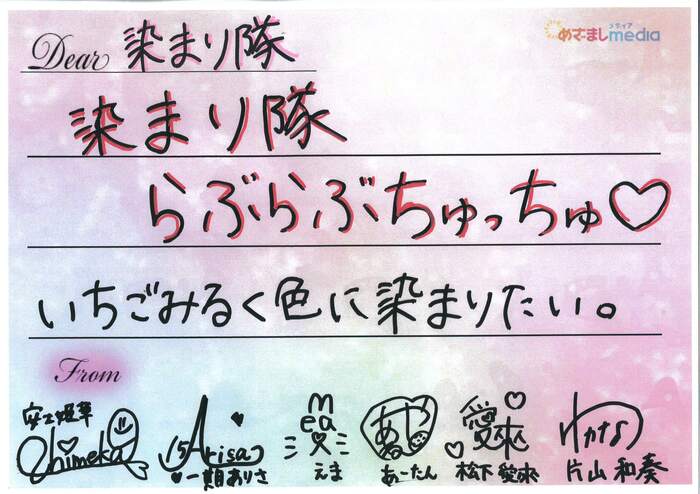 Dear 染まり隊
めざましmedia
メディア
染まり隊
らぶらぶちゅっちゅ♡
いちごみるく色に染まりたい。
From
Arisa
mea
愛來
わかな
一期ありさ
えま
あーたん
松下愛來
片山和奏